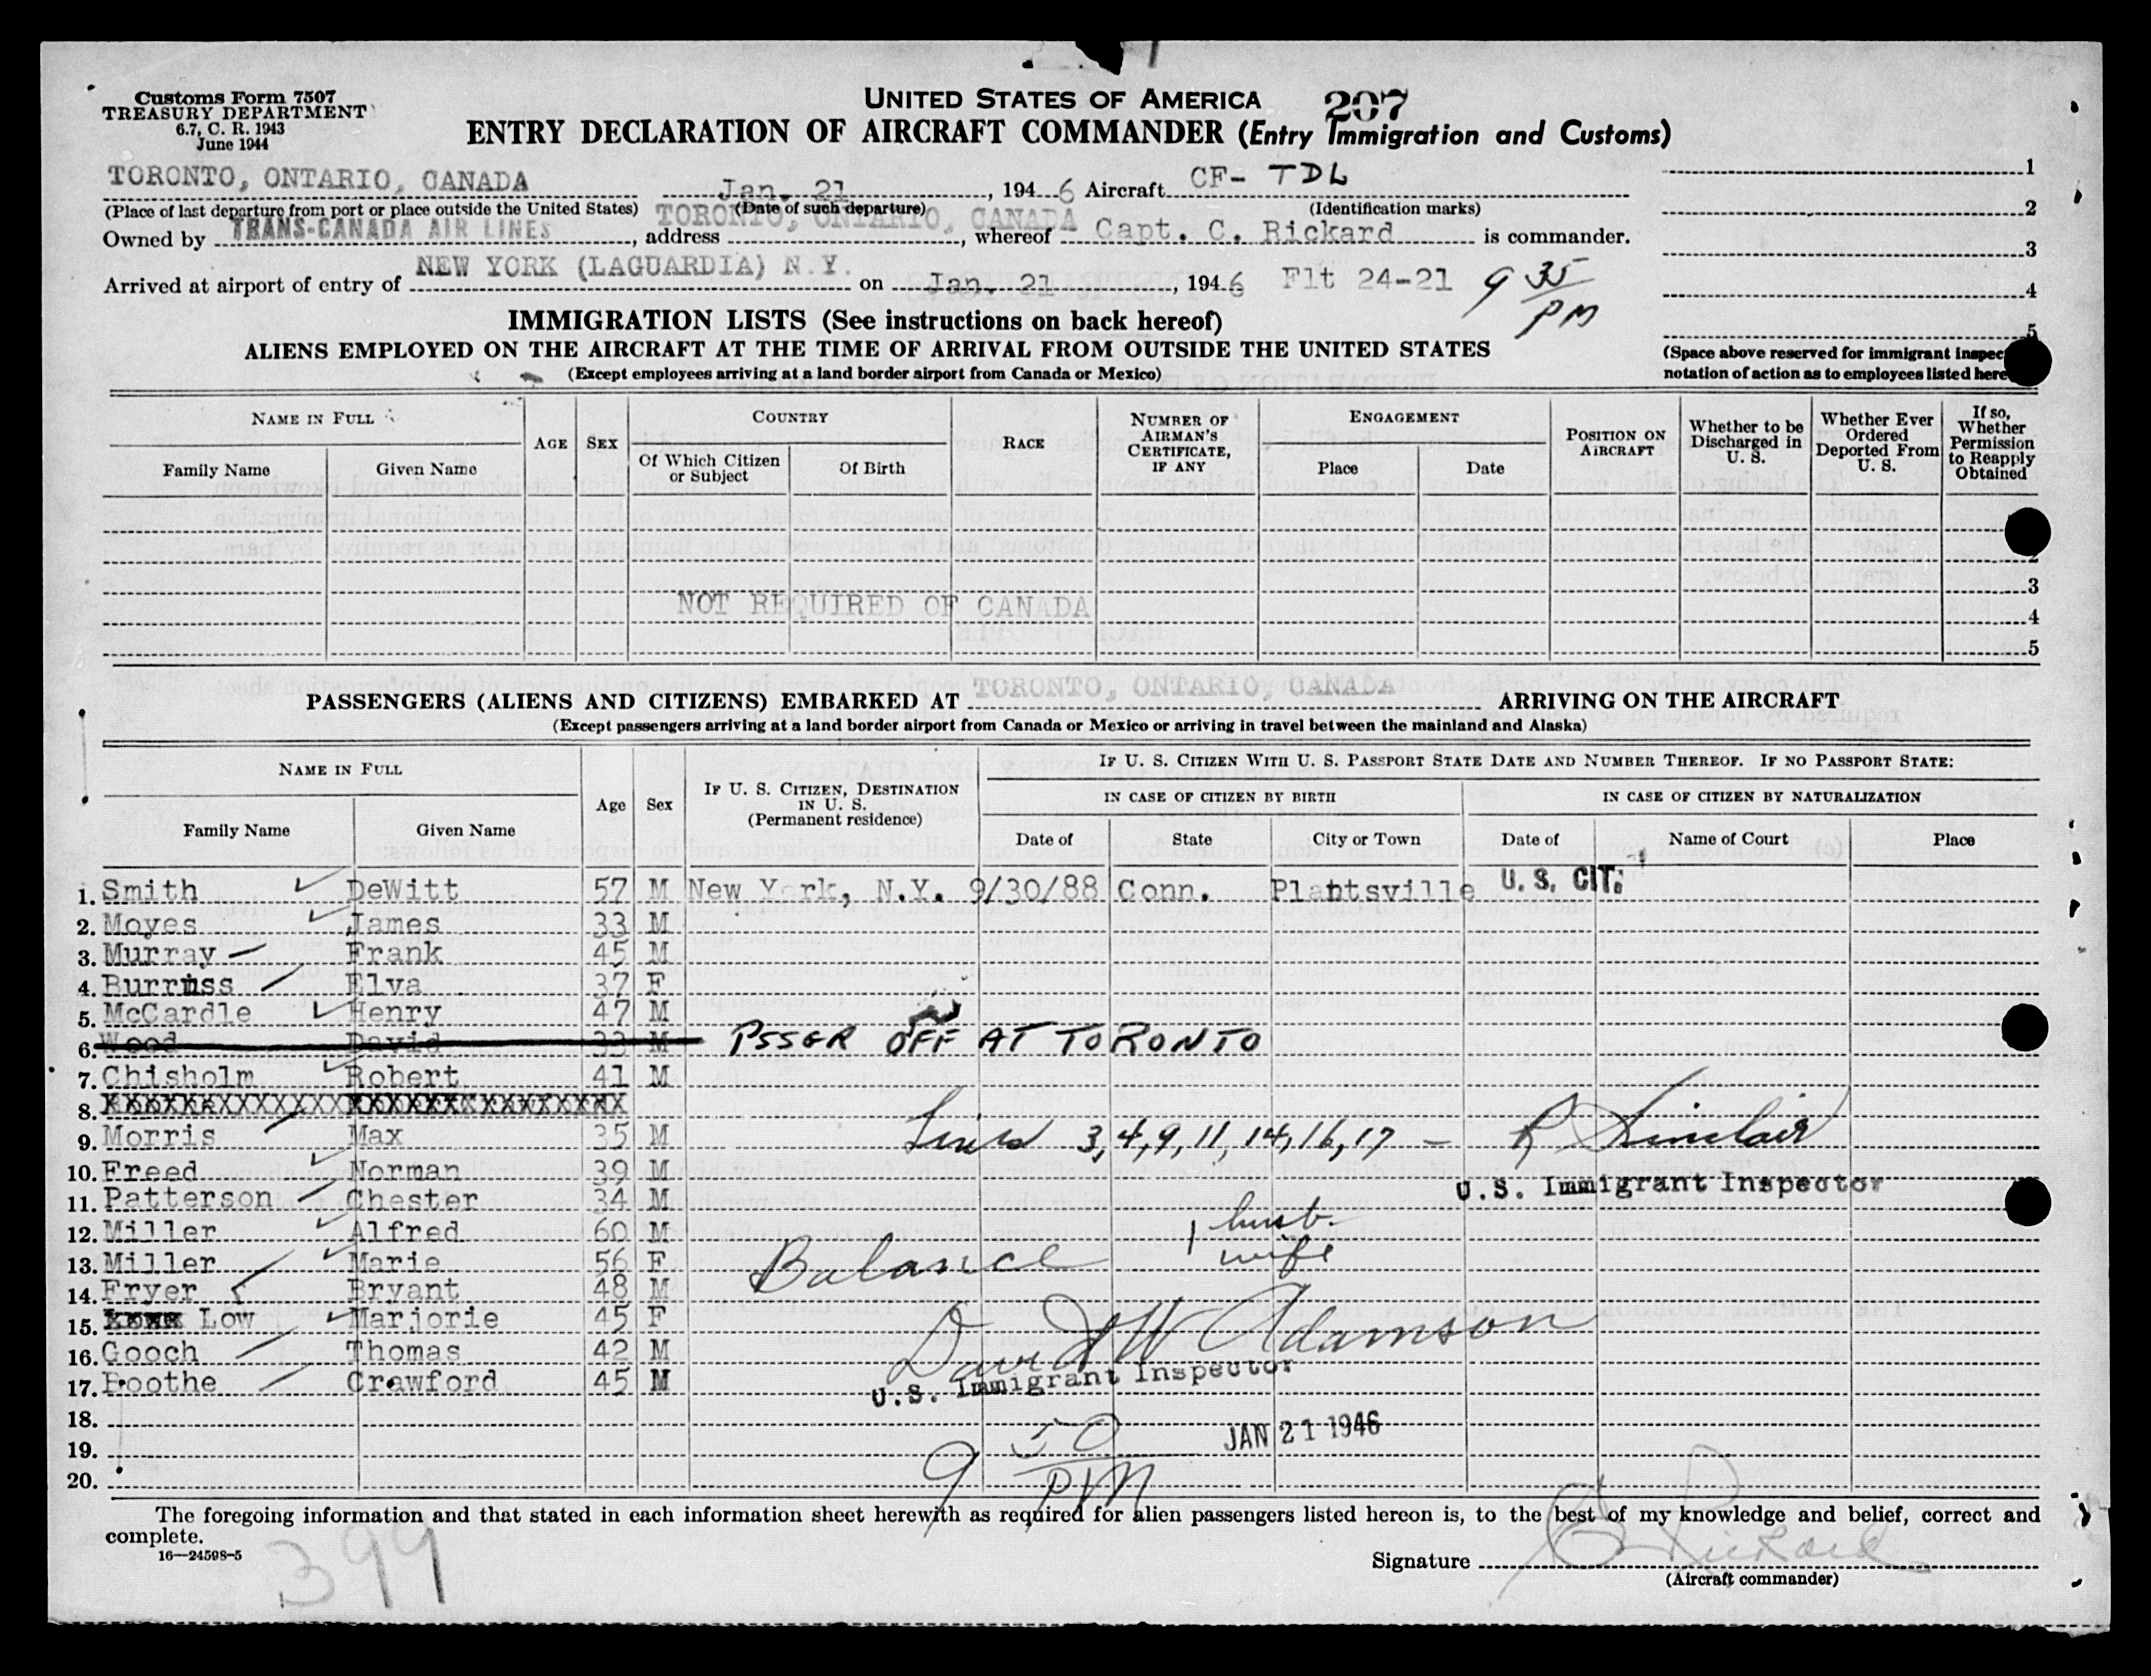 Customs Form 7507
TREASURY DEPARTMENT
6.7, C. R. 1943
June 1944
UNITED STATES OF AMERICA 207
ENTRY DECLARATION OF AIRCRAFT COMMANDER (Entry Immigration and Customs)
TORONTO, ONTARIO, CANADA Jan. 21, 1946 Aircraft CF- TDL
(Place of last departure from port or place outside the United States) (Date of such departure) (Identification marks)
Owned by TRANS-CANADA AIR LINES, address TORONTO, ONTARIO, CANADA, whereof Capt. C. Rickard is commander.
Arrived at airport of entry of NEW YORK (LAGUARDIA) N.Y. on Jan. 21, 1946 Flt 24-21 9 35 PM
1
2
3
4
5
(Space above reserved for immigrant inspec
notation of action as to employees listed here
IMMIGRATION LISTS (See instructions on back hereof)
ALIENS EMPLOYED ON THE AIRCRAFT AT THE TIME OF ARRIVAL FROM OUTSIDE THE UNITED STATES
(Except employees arriving at a land border airport from Canada or Mexico)
NAME IN FULL
Family Name Given Name
AGE SEX
COUNTRY
Of Which Citizen or Subject Of Birth
RACE
NUMBER OF AIRMAN'S CERTIFICATE, IF ANY
ENGAGEMENT
Place Date
POSITION ON AIRCRAFT
Whether to be Discharged in U. S.
Whether Ever Ordered Deported From U. S.
If so, Whether Permission to Reapply Obtained
2
3
NOT REQUIRED OF CANADA
4
5
PASSENGERS (ALIENS AND CITIZENS) EMBARKED AT TORONTO, ONTARIO, CANADA ARRIVING ON THE AIRCRAFT
(Except passengers arriving at a land border airport from Canada or Mexico or arriving in travel between the mainland and Alaska)
NAME IN FULL
Family Name Given Name
Age Sex
IF U. S. CITIZEN, DESTINATION IN U. S.
(Permanent residence)
IF U. S. CITIZEN WITH U. S. PASSPORT STATE DATE AND NUMBER THEREOF. IF NO PASSPORT STATE:
IN CASE OF CITIZEN BY BIRTH IN CASE OF CITIZEN BY NATURALIZATION
Date of State City or Town Date of Name of Court Place
1. Smith DeWitt 57 M New York, N.Y. 9/30/88 Conn. Plantsville U. S. CIT.
2. Moyes James 33 M
3. Murray Frank 45 M
4. Burruss Elva 37 F
5. McCardle Henry 47 M
6. Wood David 33 M PSSGR OFF AT TORONTO
7. Chisholm Robert 41 M
8.
9. Morris Max 35 M Lines 3, 4, 9, 11, 14, 16, 17 - R Sinclair
10. Freed Norman 39 M
U.S. Immigrant Inspector
11. Patterson Chester 34 M
12. Miller Alfred 60 M 1 husb.
13. Miller Marie 56 F Balance wife
14. Fryer Bryant 48 M
15. xxxx Low Marjorie 45 F David W Adamson
16. Gooch Thomas 42 M
17. Boothe Crawford 45 M U.S. Immigrant Inspector
18.
19. 9 50 PM JAN 21 1946
20.
The foregoing information and that stated in each information sheet herewith as required for alien passengers listed hereon is, to the best of my knowledge and belief, correct and
complete.
16—24598-5
399
Signature C Rickard
(Aircraft commander)